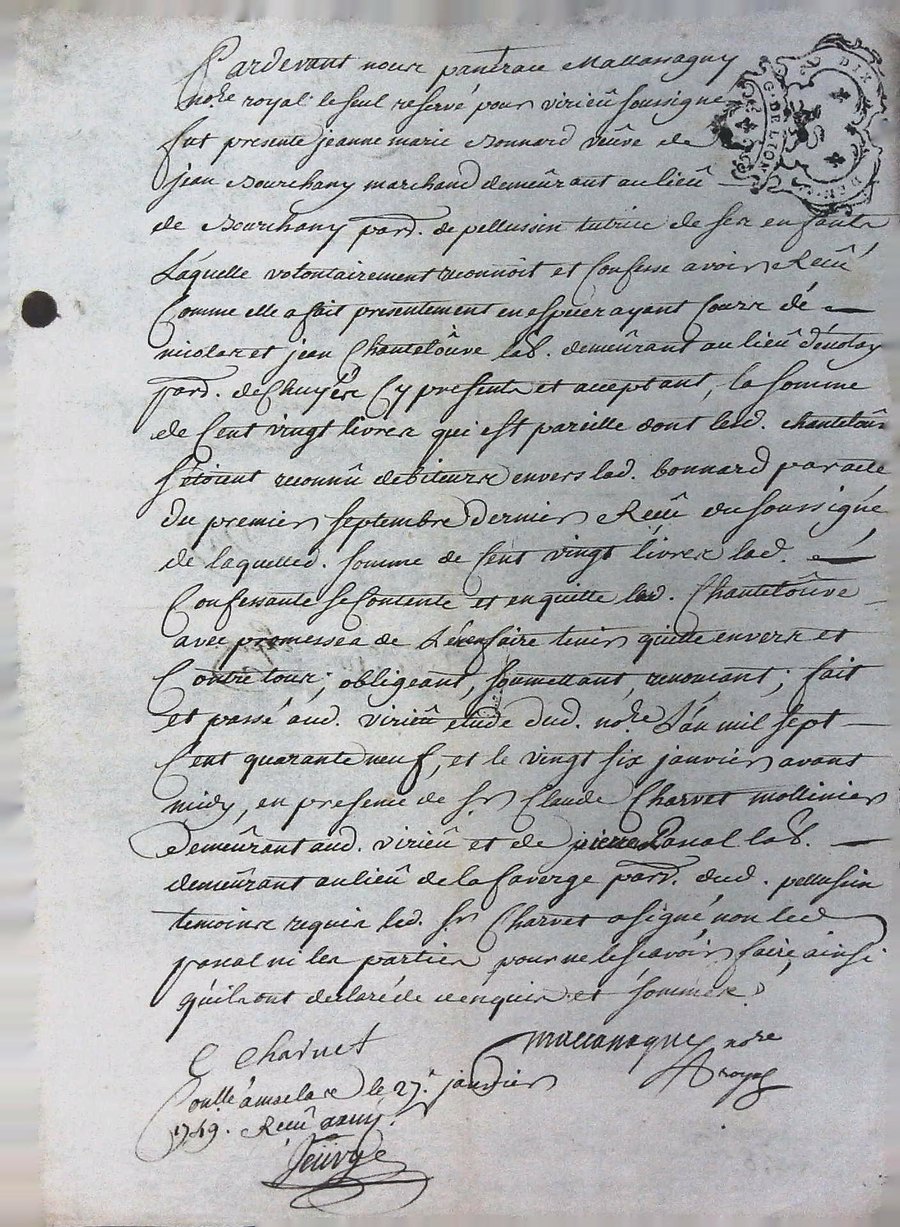 Pardevant nous pancrace Mallassagny
nore royal le seul reservé pour virieû soussigné
fut presente jeanne marie Bonnard veuve de
jean Bourchany marchand demeûrant au lieû
de Bourchany parr. de pellussin tutrice de ses enfants
Laquelle volontairement reconnoit et Confesse avoir Receû
Comme elle a fait presentement en especes ayant Cours de
nicolas et jean Chantelouve lab. demeûrant au lieû
parr. de Chuyers Cy presents et acceptant, la somme
de Cent vingt livres qui est pareille dont lesd. chantelouve
s'etoient reconnû debiteurs envers lad. bonnard par acte
du premier septembre dernier Receû du soussigné
de laquelle d. somme de Cent vingt livres lad.
Confessante se Contente et en quitte lesd. Chantelouve
avec promesses de Les en faire tenir quitte envers et
Contre tous; obligeant, soumettant, renonçant; fait
et passé aud. virieû etude dud. nore L'an mil sept
Cent quarante neuf, et le vingt six janvier avant
midy, en presence de sr Claude Charvet mollinier
Demeûrant aud. virieû et de pierre Panal lab.
demeûrant au lieû de la faverge parr. dud. pellussin
temoins requis led. sr Charvet a signé, non led
panal ni les parties pour ne le sçavoir faire, ainsi
qu'ils ont declaré de ce enquis et sommés
C Charvet
Mallassagny nore
royal
le 27e janvier
1749. Receû
G. DE LION
DIX
DEN.S